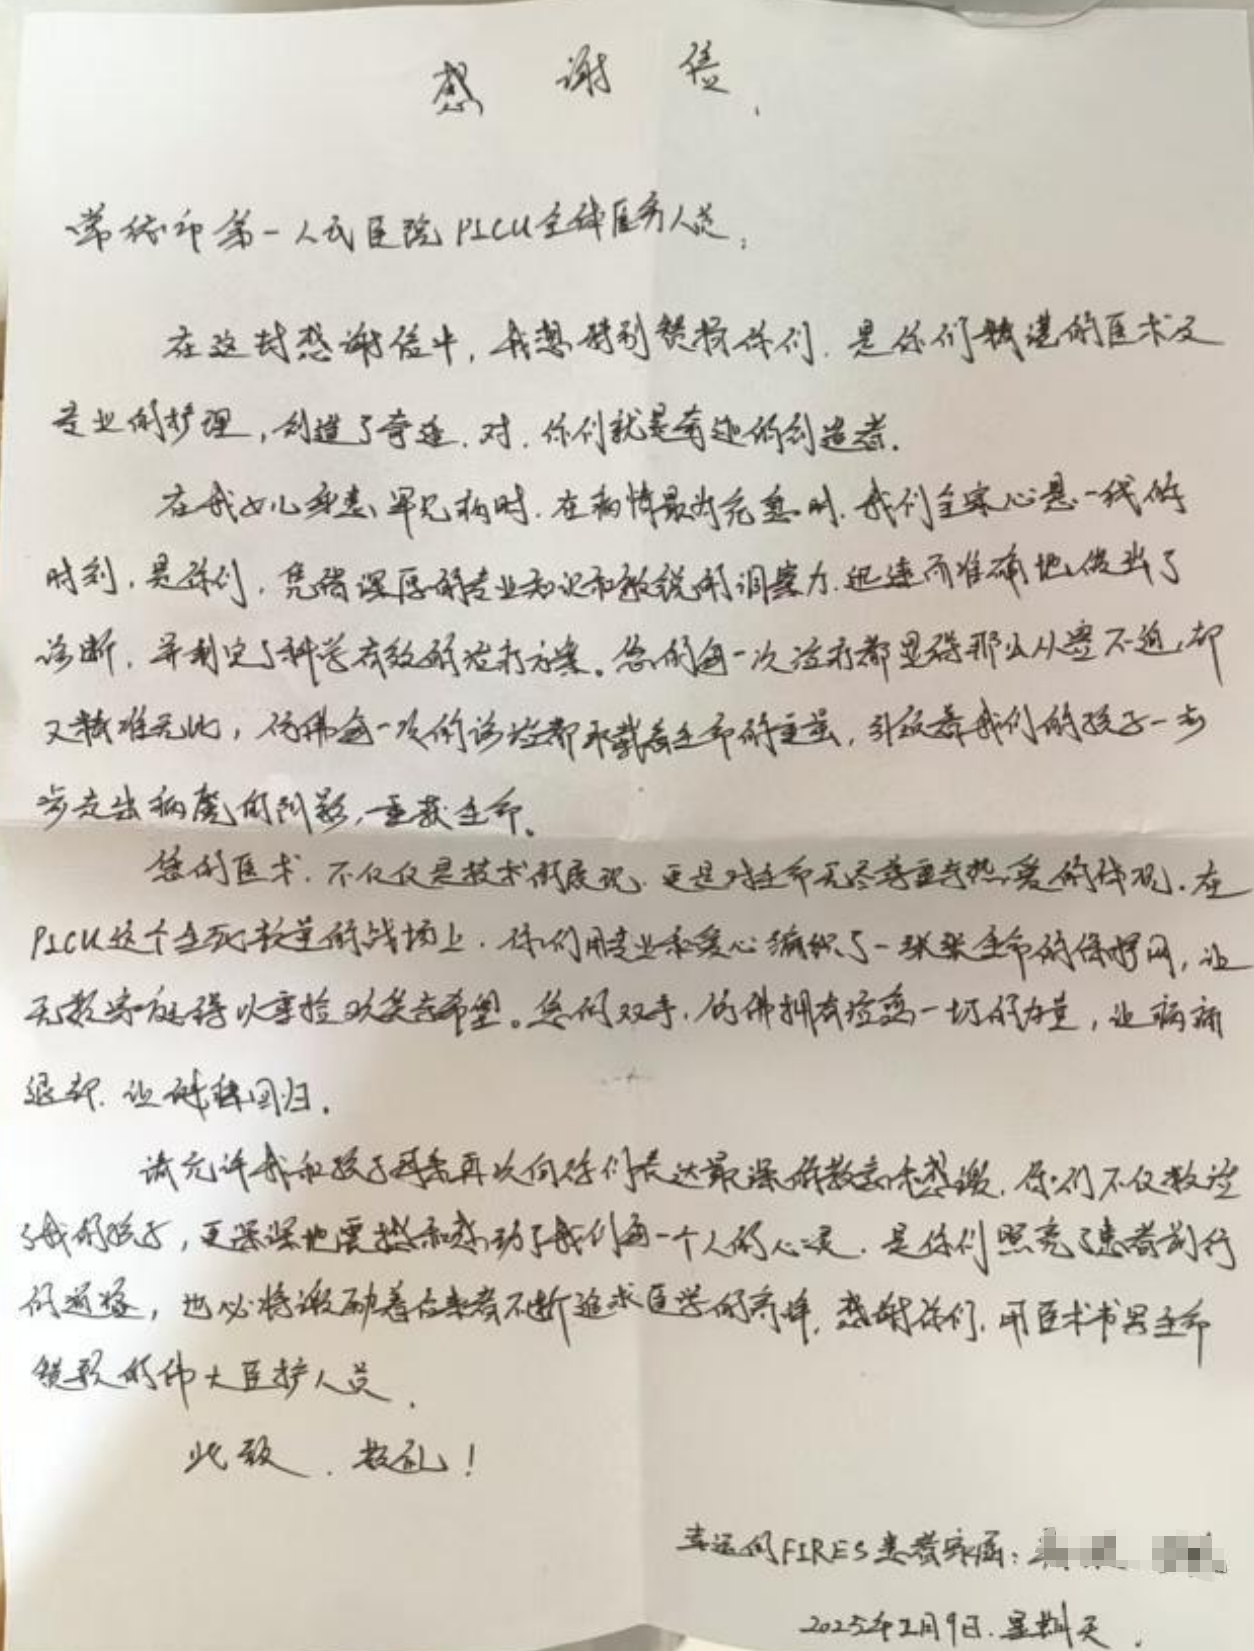 感谢信.
常德市第一人民医院PICU全体医务人员:
在这封感谢信中,我想特别赞扬你们.是你们精湛的医术及
专业的护理,创造了奇迹.对.你们就是奇迹的创造者.
在我女儿身患罕见病时.在病情最为危急时.我们全家心悬一线的
时刻.是你们,凭借深厚的专业知识和敏锐的洞察力.迅速而准确地做出了
诊断,并制定了科学有效的治疗方案。您们每一次治疗都显得那么从容不迫,却
又精准无比,仿佛每一次的诊疗都承载着生命的重量,引领着我们的孩子一步
步走出病魔的阴影,重获生命。
您的医术.不仅仅是技术的展现.更是对生命无尽尊重与热爱的体现.在
PICU这个生死较量的战场上.你们用专业和爱心编织了一张张生命的保护网,让
无数家庭得以重拾欢笑与希望。您们双手,仿佛拥有治愈一切的力量,让病痛
退却.让健康回归.
请允许我和孩子再次向你们表达最深的敬意和感激.你们不仅救治
了我的孩子,更深深地震撼和感动了我们每一个人的心灵.是你们照亮了患者前行
的道路,也必将激励着后来者不断追求医学的高峰.感谢你们,用医术书写生命
赞歌的伟大医护人员.
此致.敬礼!
幸运的FIRES患者家属:
2025年2月9日.星期天.